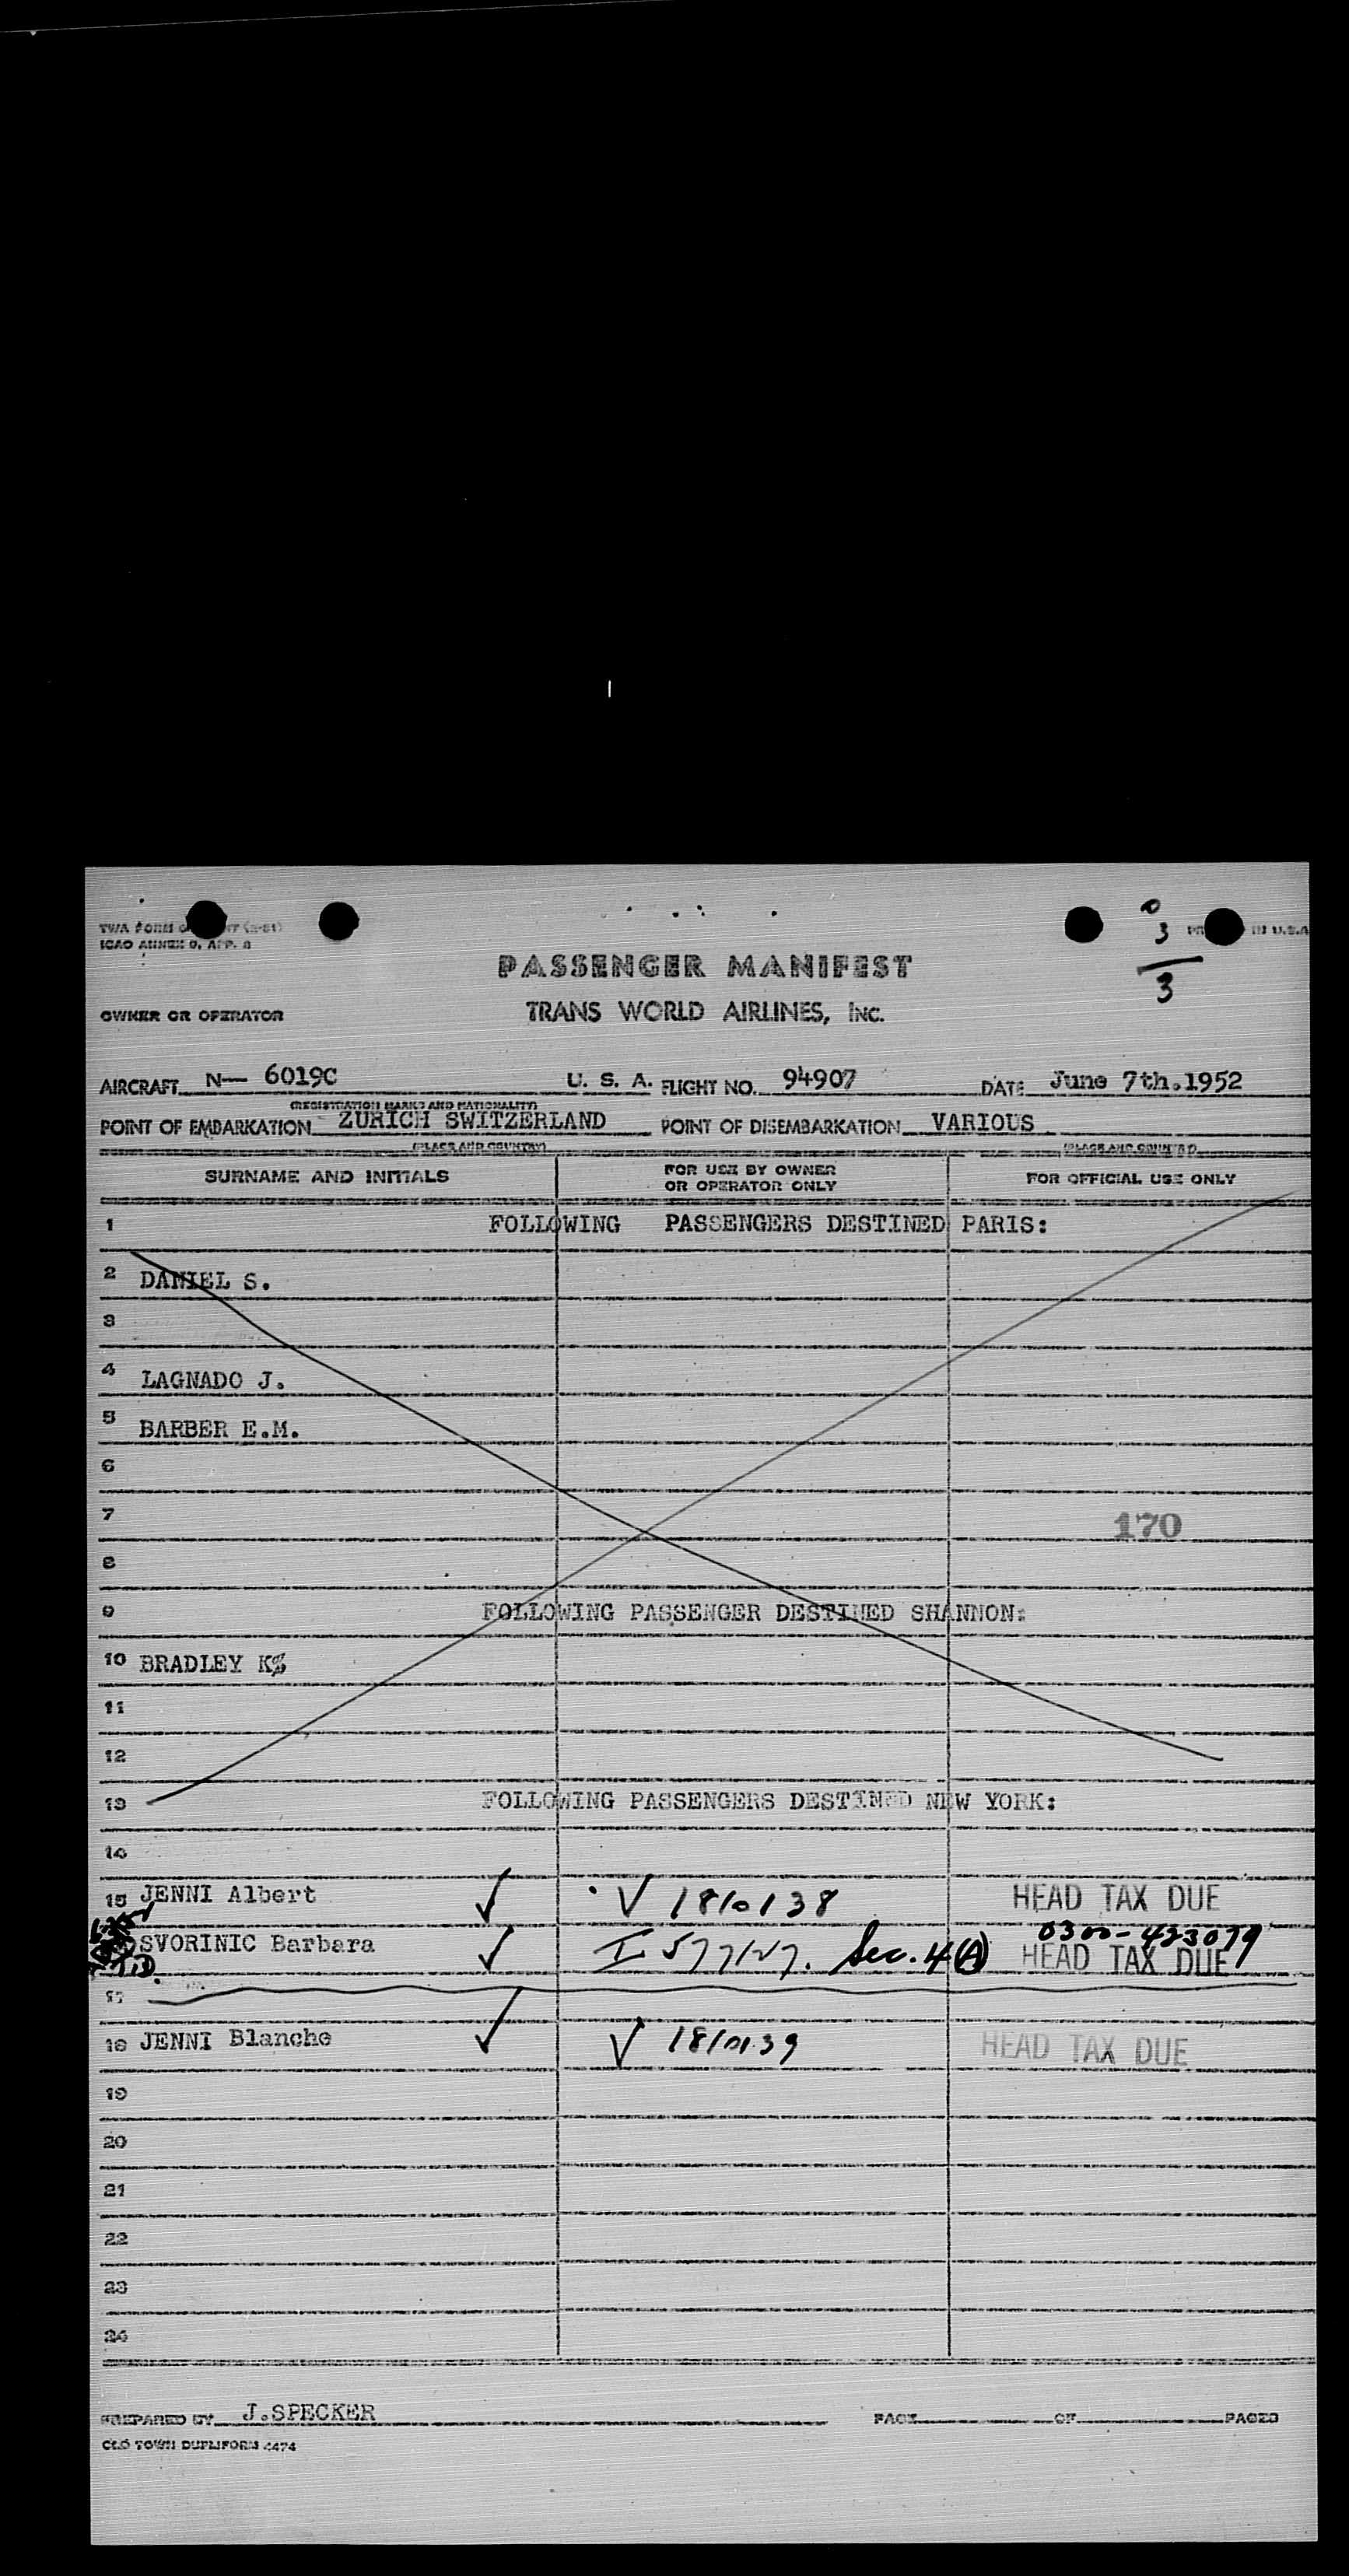 TWA FORM
ICAO ANNEX 9, APP. 8
0
3
3
IN U.S.A
PASSENGER MANIFEST
OWNER OR OPERATOR TRANS WORLD AIRLINES, INC.
AIRCRAFT N— 6019C U. S. A. FLIGHT NO. 94907 DATE June 7th.1952
(REGISTRATION MARKS AND NATIONALITY)
POINT OF EMBARKATION ZURICH SWITZERLAND POINT OF DISEMBARKATION VARIOUS
(PLACE AND COUNTRY) (PLACE AND COUNTRY)
SURNAME AND INITIALS FOR USE BY OWNER OR OPERATOR ONLY FOR OFFICIAL USE ONLY
1 FOLLOWING PASSENGERS DESTINED PARIS:
2 DANIEL S.
3
4 LAGNADO J.
5 BARBER E.M.
6
7 170
8
9 FOLLOWING PASSENGER DESTINED SHANNON:
10 BRADLEY K
11
12
13 FOLLOWING PASSENGERS DESTINED NEW YORK:
14
15 JENNI Albert ✓ V 1810138 HEAD TAX DUE
0300-423079
SVORINIC Barbara ✓ I 577127. Sec. 4(A) HEAD TAX DUE
17
18 JENNI Blanche ✓ V 1810139 HEAD TAX DUE
19
20
21
22
23
24
PREPARED BY J.SPECKER PAGE OF PAGES
OLD TOWN DUPLIFORM 4474